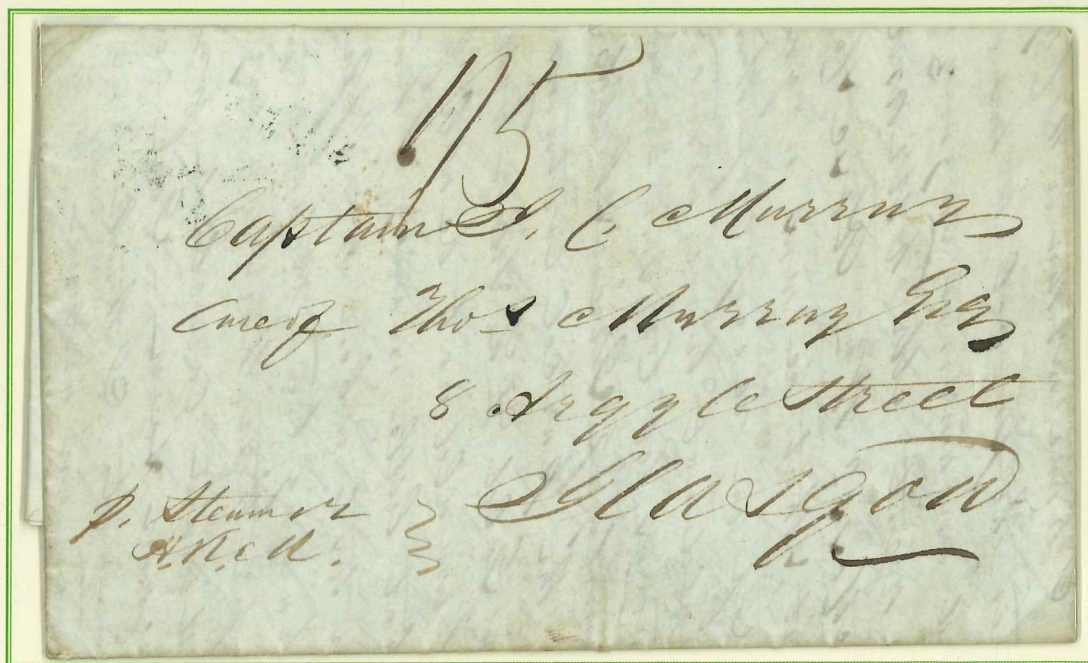 1/5
Captain D. C. Murray
Care of Thos Murray Esq
8 Argyle Street
Glasgow
p. Steamer
H.R.M.